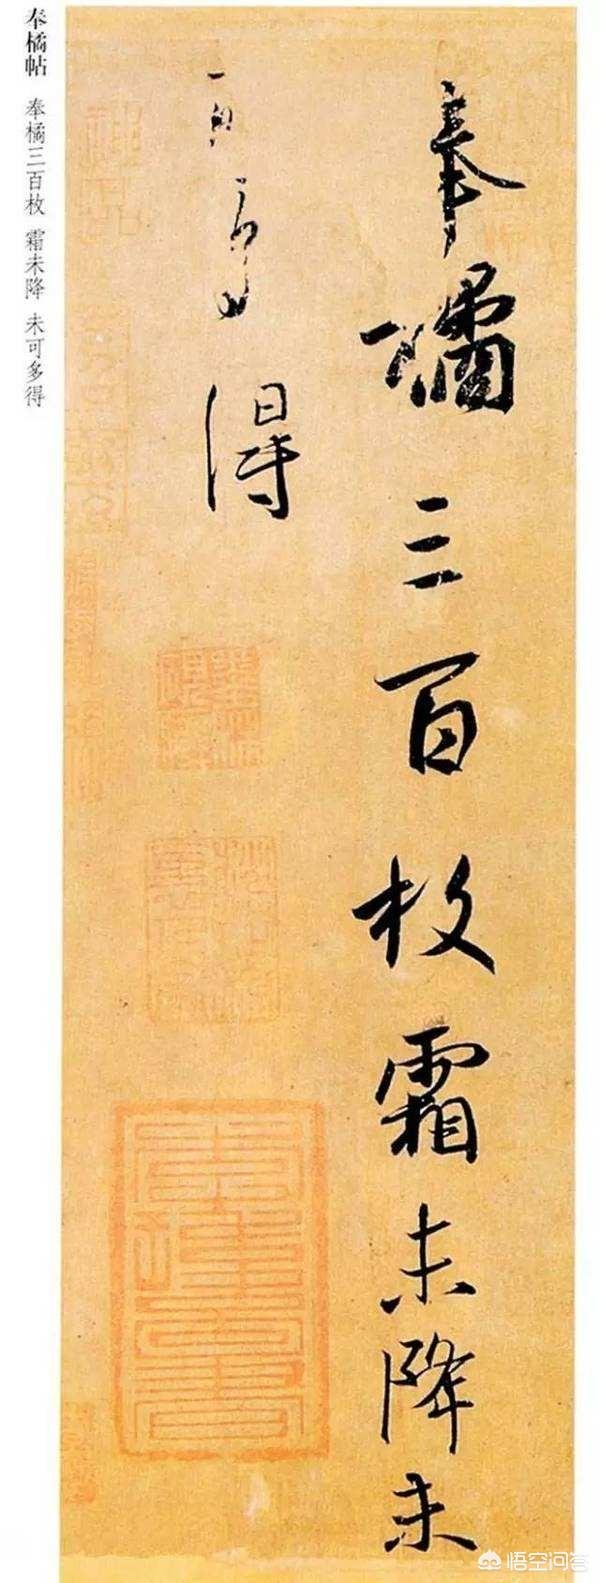 奉橘帖 奉橘三百枚 霜未降 未可多得
奉橘三百枚霜未降未
可多得
悟空问答